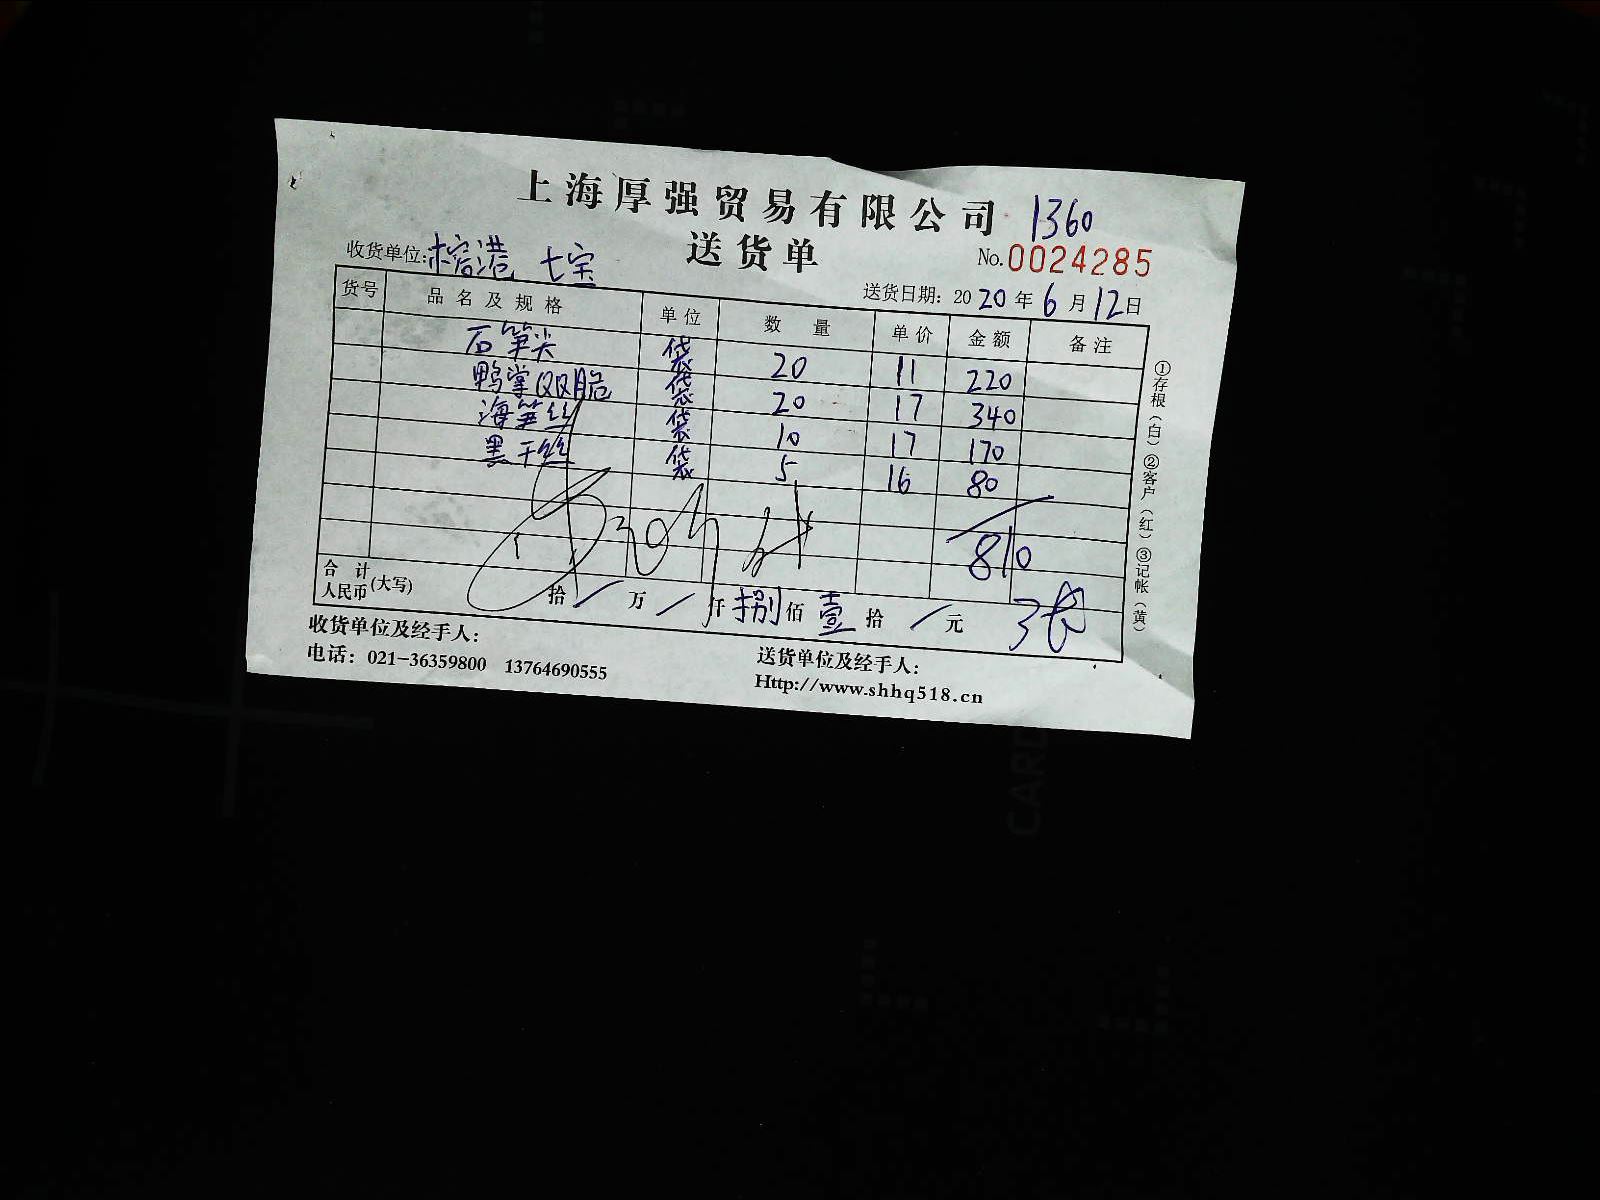 上海厚强贸易有限公司 1360
送货单 No.0024285
收货单位:榕港 七宝
送货日期: 2020年6月12日
货号 品名及规格 单位 数量 单价 金额 备注
石笋尖 袋 20 11 220
鸭掌QQ脆 袋 20 17 340
海笋丝 袋 10 17 170
黑干丝 袋 5 16 80
810
合计
人民币(大写) 拾/万/仟捌佰壹拾/元
收货单位及经手人:
送货单位及经手人:
电话: 021-36359800 13764690555
Http://www.shhq518.cn
①存根(白)②客户(红)③记帐(黄)
CARD